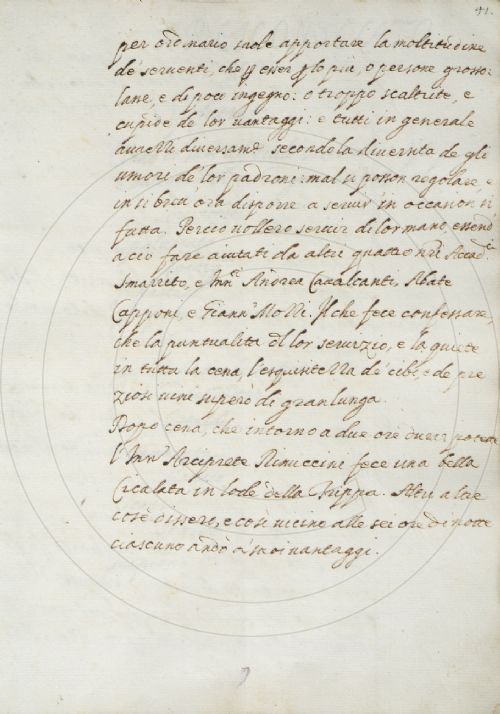 91.
per ord.nario suole apportare la moltitudine
de' seruenti, che p esser p lo più, o persone grosso=
lane, e di poco ingegno: o troppo scaltrite, e
cupide de lor uantaggi: e tutti in generale
auuezzi diuersamte secondo la diuersità de gli
umori de lor padroni: mal si posson regolare, e
in sì breu ora disporre a seruir in occasion sì
fatta. Perciò uollero seruir di lor mano, essendo
a ciò fare aiutati da altri quattro nri Accad.ci
Smarrito, e Andrea Caualcanti, Abate
Capponi, e Giann Il che fece confessare,
che la puntualità dl lor seruizio, e la quiete
in tutta la cena, l'esquisitezza de' cibi, e de pre
ziosi uini superò di gran lunga.
Dopo cena, che intorno a due ore durar potette
l' Arciprete Rinuccini fece una bella
Cicalata in lode della Trippa. Altri altre
cose dissero, e così uicino alle sei ore di notte
ciascuno andò a' suoi uantaggi.